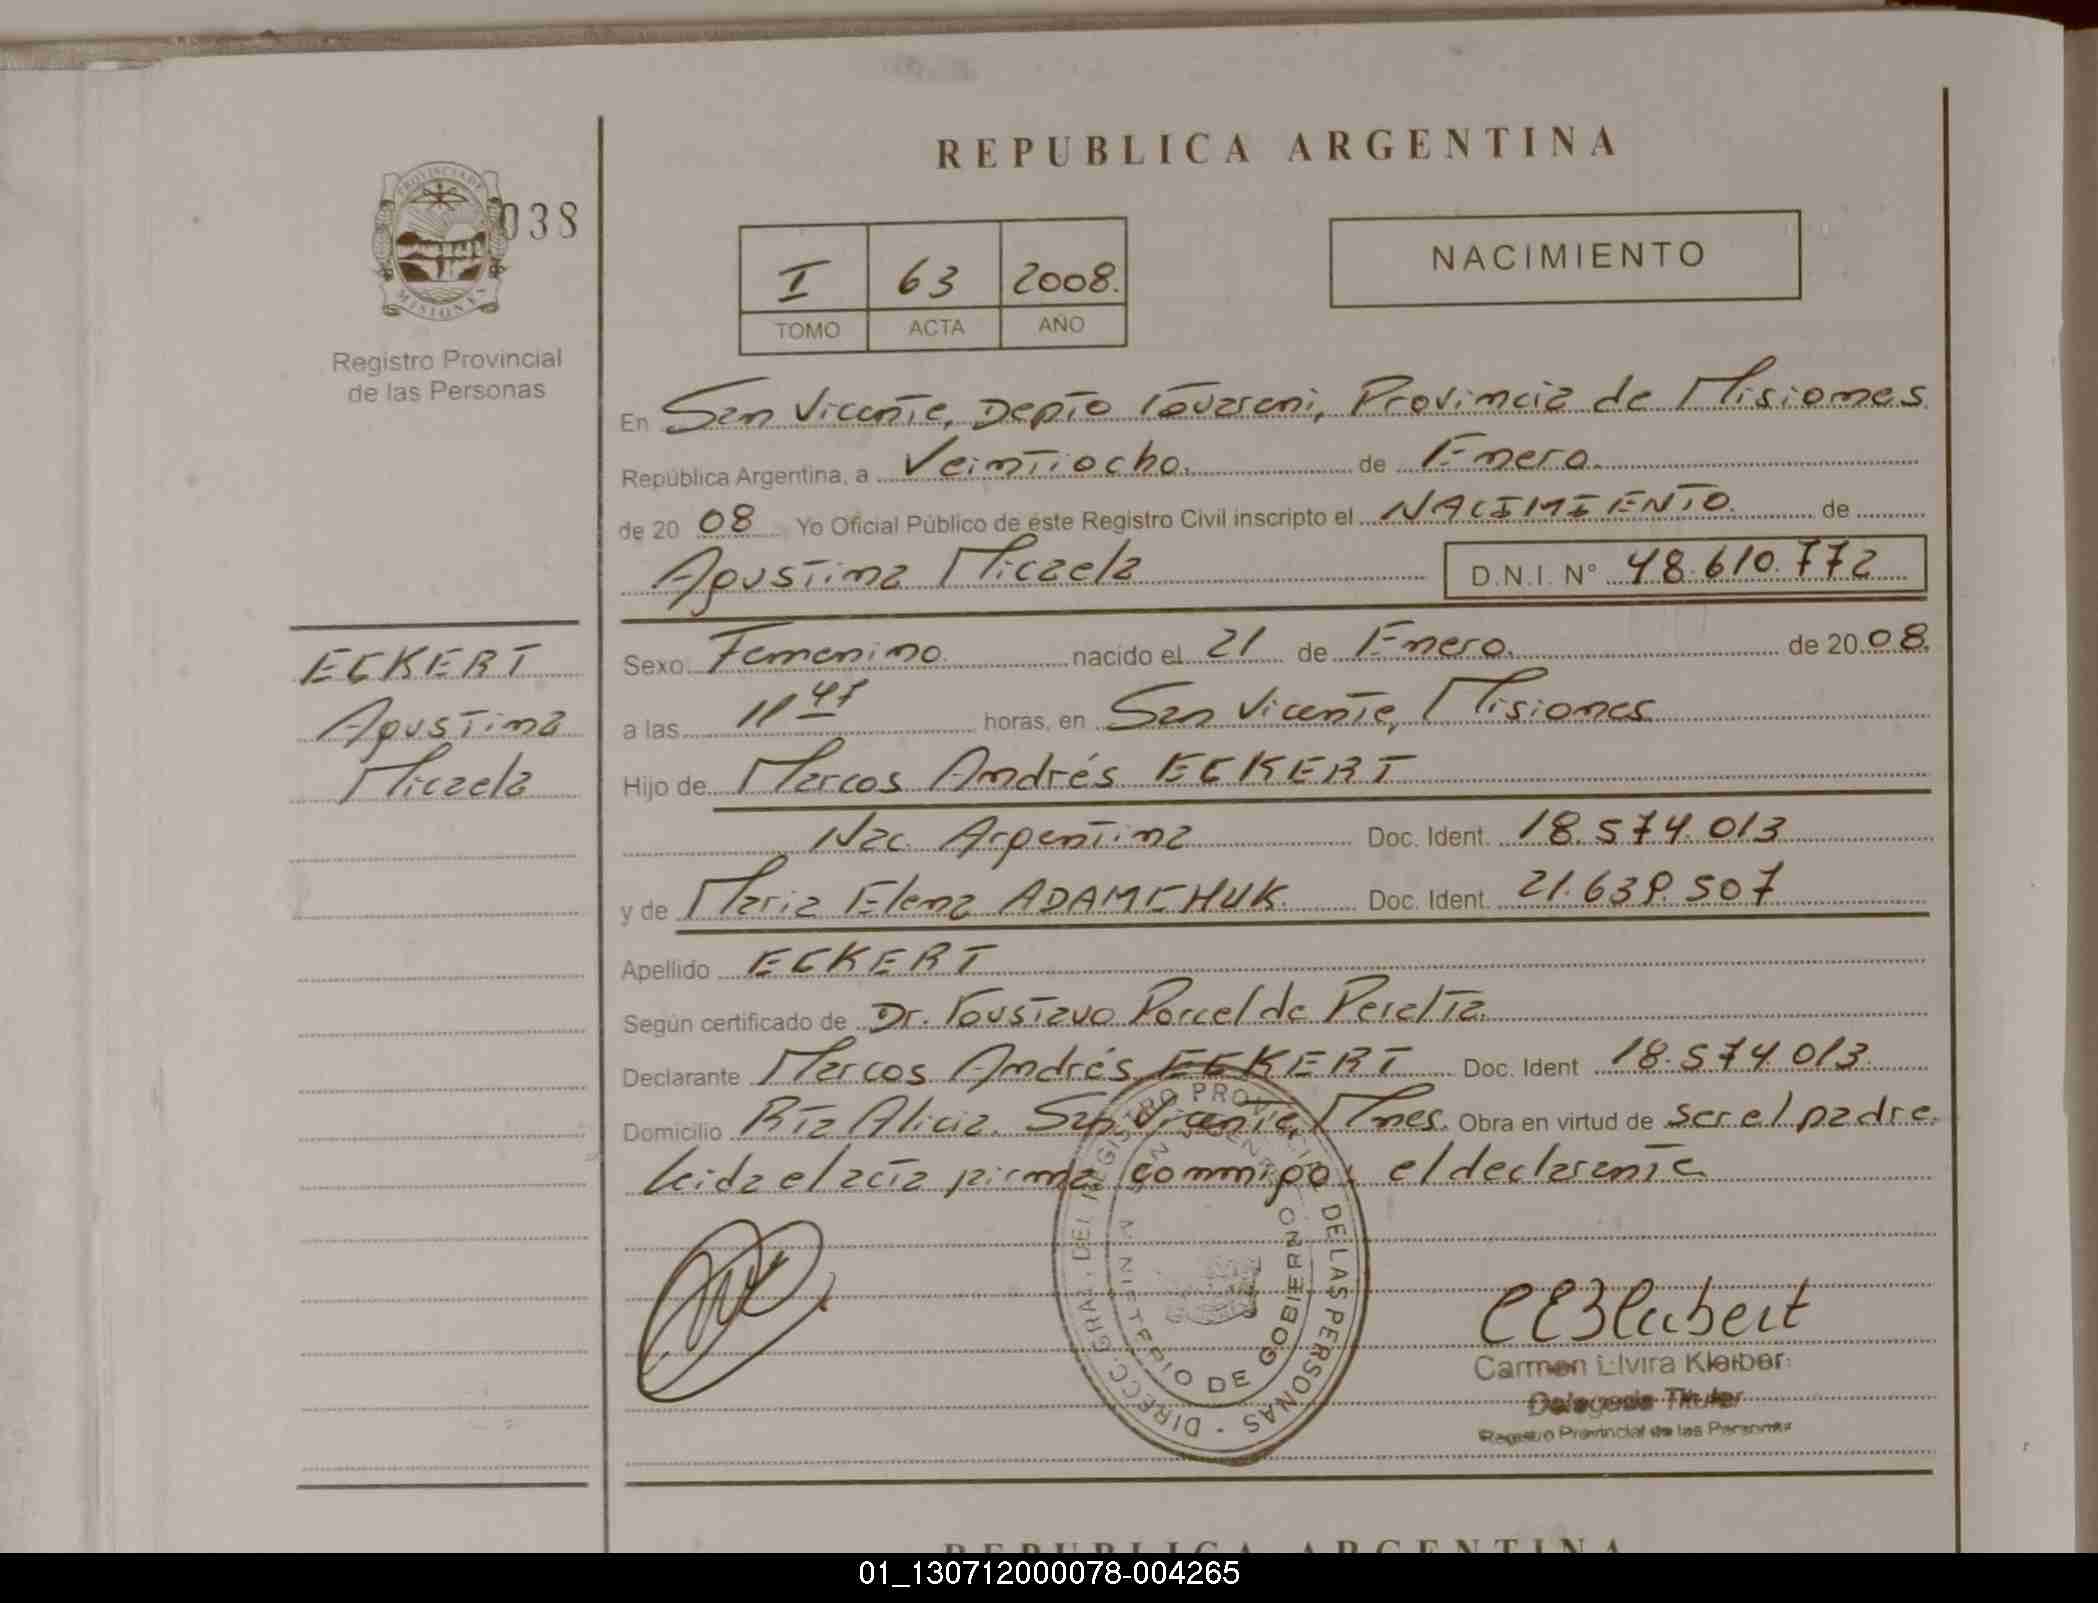 REPUBLICA ARGENTINA
PROVINCIA DE MISIONES
038
Registro Provincial
de las Personas
I 63 2008.
TOMO ACTA AÑO
NACIMIENTO
En San Vicente, Depto Guarani, Provincia de Misiones
República Argentina, a Veintiocho. de Enero.
de 20 08 Yo Oficial Público de éste Registro Civil inscripto el NACIMIENTO. de
Agustina Micaela D.N.I. N° 48.610.772
ECKERT
Agustina
Micaela
Sexo Femenino. nacido el 21 de Enero. de 20 08.
a las 11 47 horas, en San Vicente, Misiones
Hijo de Marcos Andrés ECKERT
Nac. Argentina Doc. Ident. 18.574.013
y de Maria Elena ADAMCHUK. Doc. Ident. 21.639.507
Apellido ECKERT
Según certificado de Dr. Gustavo Porcel de Peralta.
Declarante Marcos Andrés ECKERT Doc. Ident 18.574.013.
Domicilio Rta Alicia. San Vicente, Mnes. Obra en virtud de ser el padre.
Leida el acta firma conmigo; el declarante
DIRECC. GRAL. DEL REGISTRO PROVINCIAL DE LAS PERSONAS
MINISTERIO DE GOBIERNO
SAN VICENTE
Carmen Elvira Kleiber
Delegada Titular
Registro Provincial de las Personas
REPUBLICA ARGENTINA
01_130712000078-004265